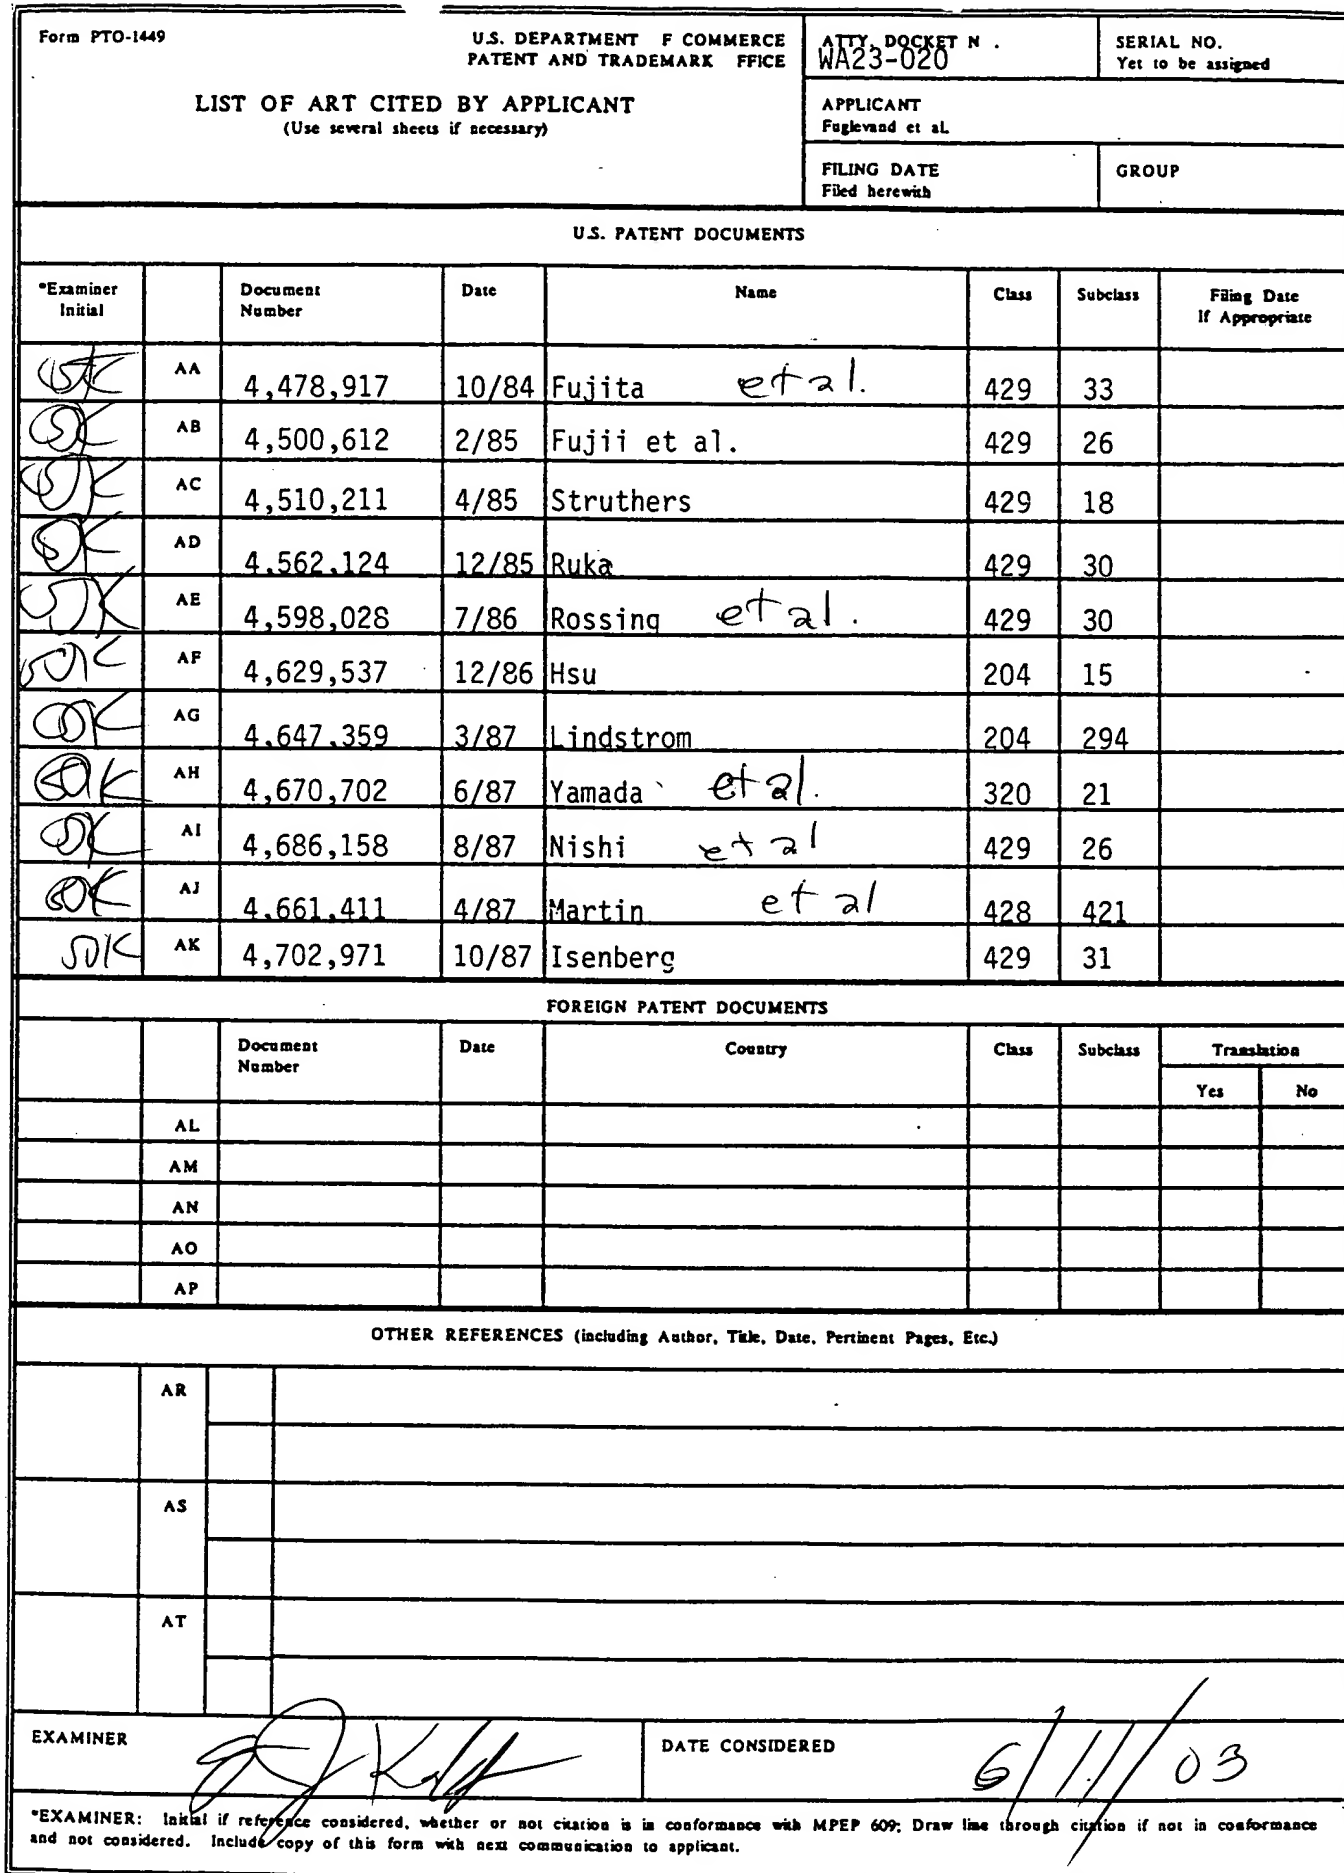 Form PTO-1449
U.S. DEPARTMENT F COMMERCE
PATENT AND TRADEMARK FFICE
ATTY. DOCKET N .
WA23-020
SERIAL NO.
Yet to be assigned
LIST OF ART CITED BY APPLICANT
(Use several sheets if necessary)
APPLICANT
Fuglevand et al.
FILING DATE
Filed herewith
GROUP
U.S. PATENT DOCUMENTS
*Examiner Initial Document Number Date Name Class Subclass Filing Date If Appropriate
AA 4,478,917 10/84 Fujita et al. 429 33
AB 4,500,612 2/85 Fujii et al. 429 26
AC 4,510,211 4/85 Struthers 429 18
AD 4,562,124 12/85 Ruka 429 30
AE 4,598,028 7/86 Rossing et al. 429 30
AF 4,629,537 12/86 Hsu 204 15
AG 4,647,359 3/87 Lindstrom 204 294
AH 4,670,702 6/87 Yamada et al. 320 21
AI 4,686,158 8/87 Nishi et al 429 26
AJ 4,661,411 4/87 Martin et al 428 421
AK 4,702,971 10/87 Isenberg 429 31
FOREIGN PATENT DOCUMENTS
Document Number Date Country Class Subclass Translation
Yes No
AL
AM
AN
AO
AP
OTHER REFERENCES (including Author, Title, Date, Pertinent Pages, Etc.)
AR
AS
AT
EXAMINER
DATE CONSIDERED
6/11/03
*EXAMINER: Initial if reference considered, whether or not citation is in conformance with MPEP 609; Draw line through citation if not in conformance
and not considered. Include copy of this form with next communication to applicant.